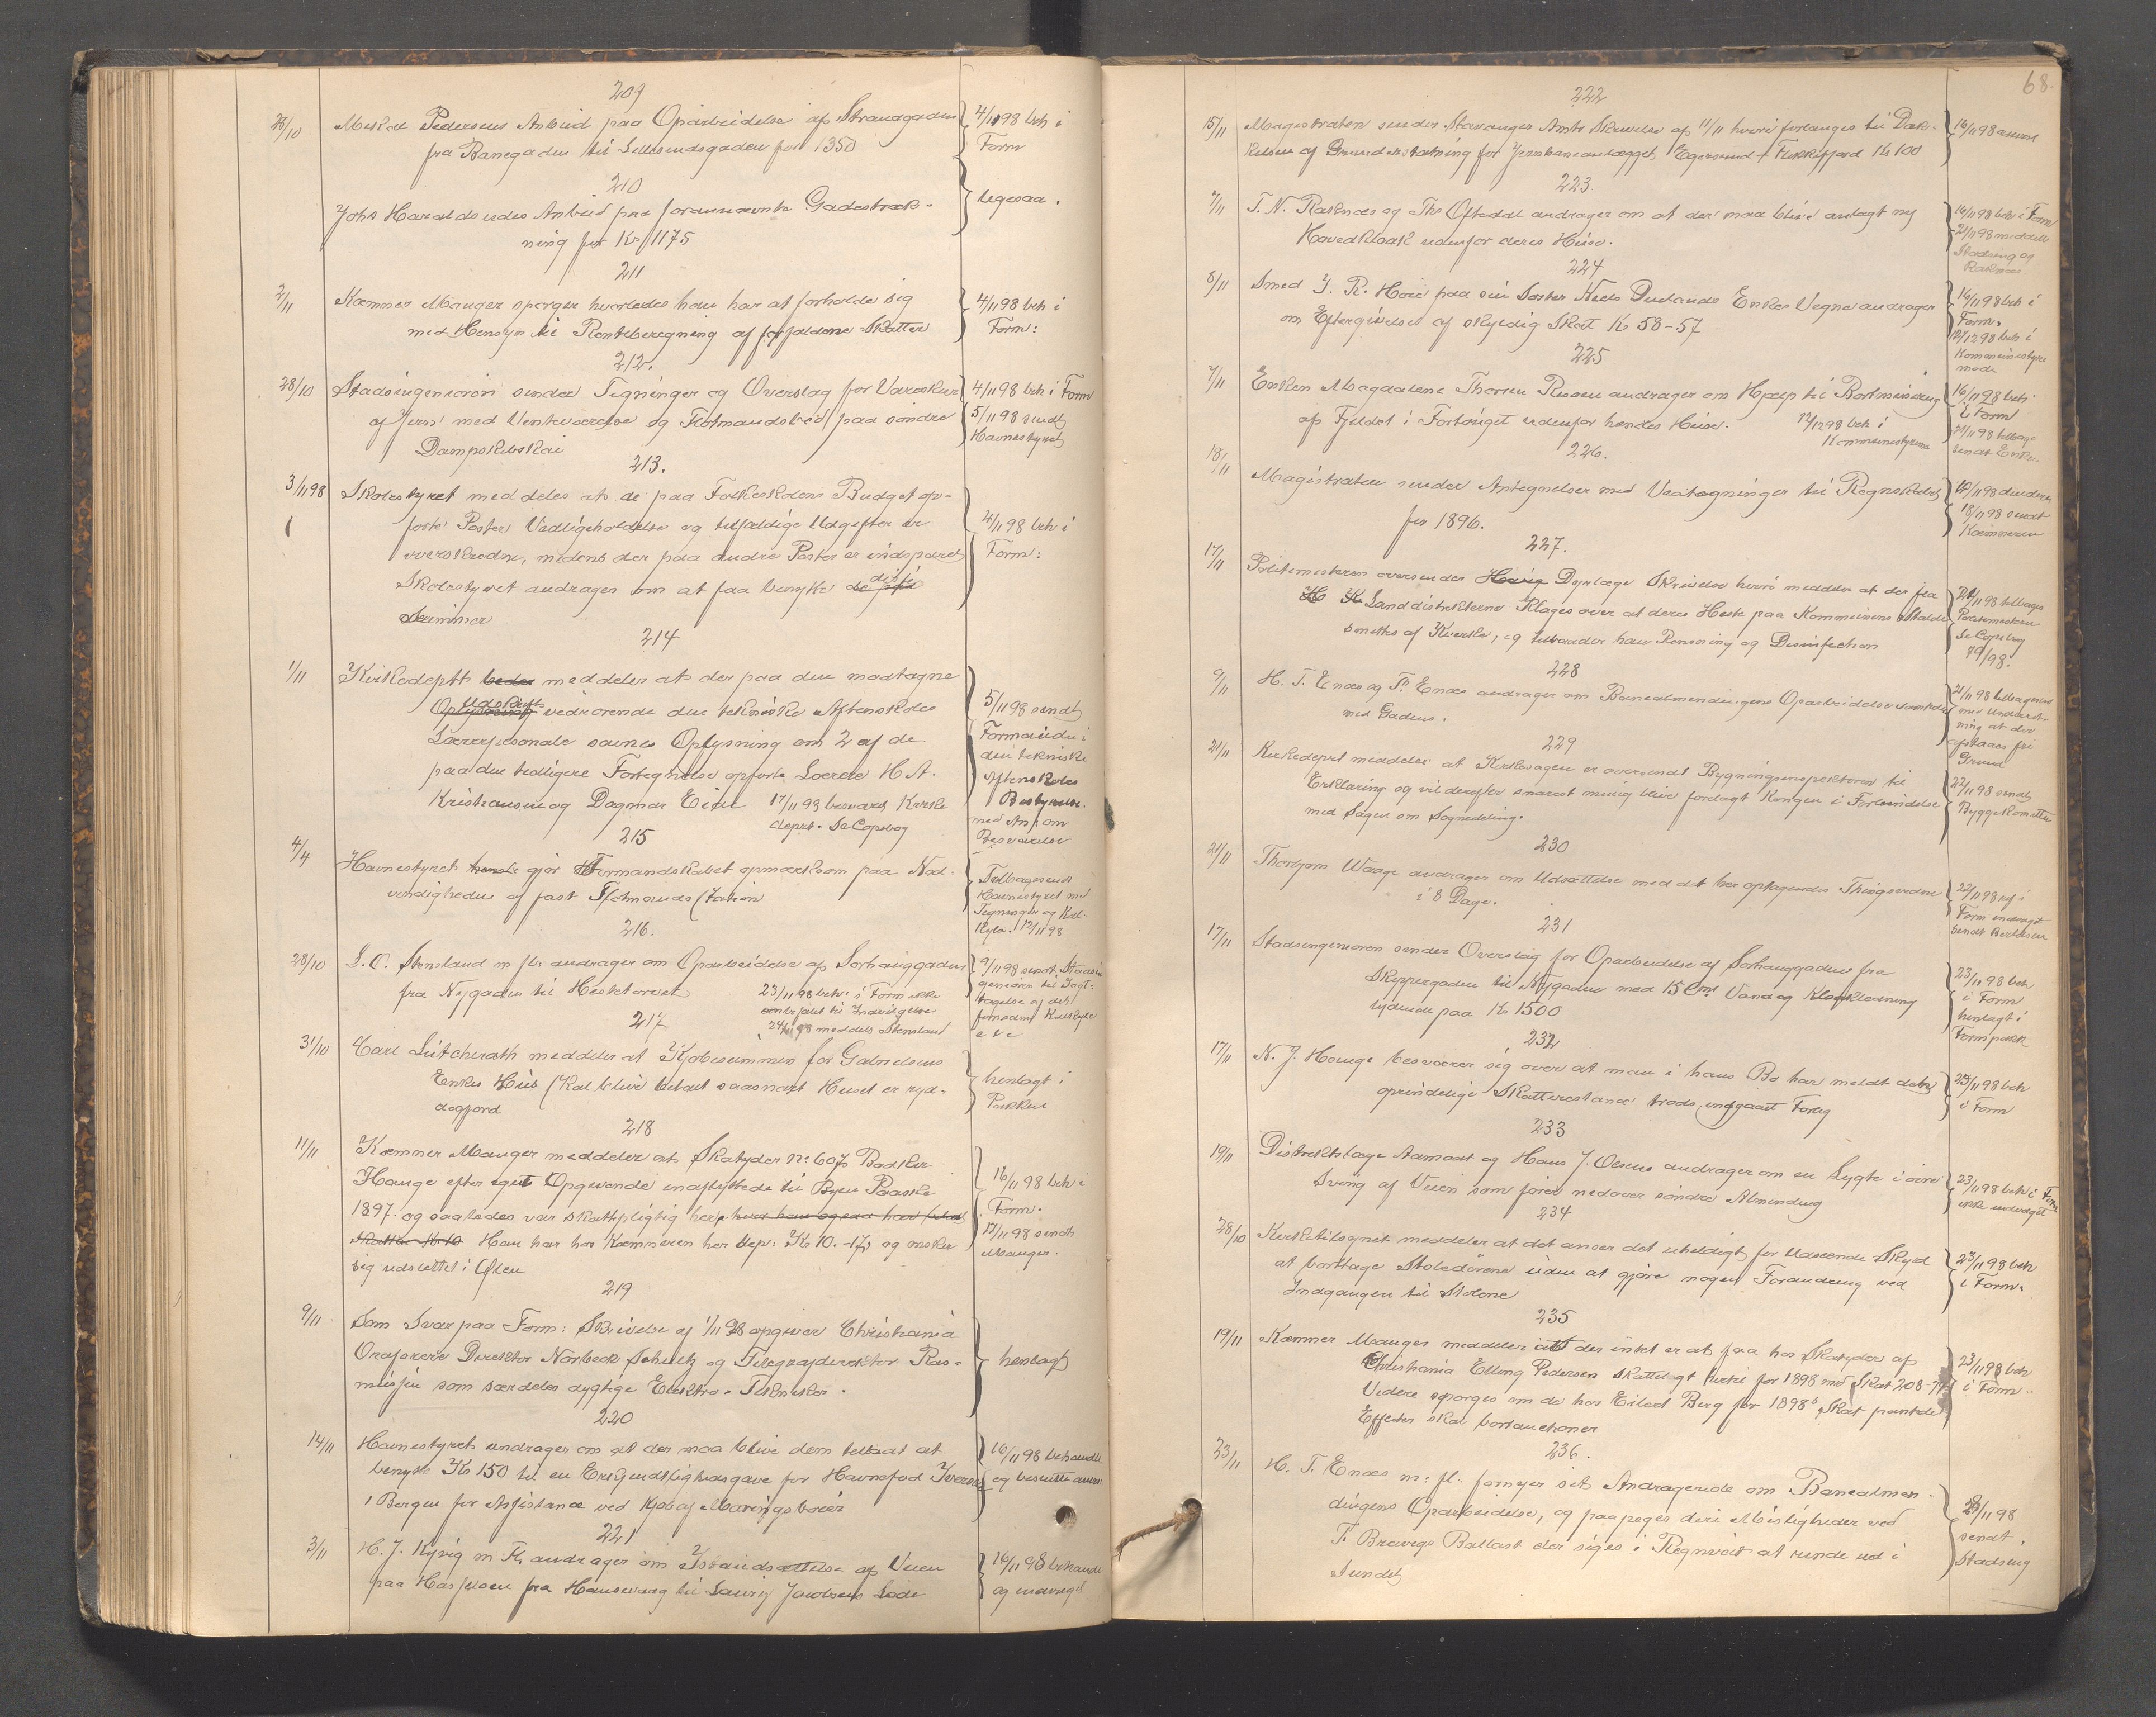 209
28/10 Mikal Pedersens Anbud paa Oparbeidelse af Strandgaden
fra Banegaden til Lillesundsgaden for 1350
4/11 98 beh i
Form
210
Johs Haraldseides Anbud paa forannævnte Gadestræk-
ning for Kr 1175
ligesaa.
211
2/11 Kæmner Mauger spørger hvorledes han har at forholde sig
med Hensyn til Renteberegning af forfaldene Skatter
4/11 98 beh i
Form:
212.
28/10 Stadsingeniøren sender Tegninger og Overslag for Vareskur
af Jern med Venteværelse og Flotmandsbod paa søndre
Dampskibskai
4/11 98 beh i Form
5/11 98 sendt
Havnestyret
213.
3/11 98 Skolestyret meddeles at de paa Folkeskolens Budget op-
førte Poster Vedligeholdelse og tilfældige Udgifter er
overskredne, medens der paa andre Poster er indsparet
Skolestyret andrager om at faa benytte disse
Summer
4/11 98 beh i
Form:
214
1/11 Kirkedeptt beder meddeler at der paa den modtagne
Udskrift
Oplysning vedrørende den tekniske Aftenskoles
Lærerpersonale savnes Oplysning om 2 af de
paa den tidligere Fortegnelse opførte Lærere H. A.
Kristiansen og Dagmar Eide
17/11 98 besvaret Kirke
dept. Se Copibog
5/11 98 sendt
Formanden i
den tekniske
Aftenskoles
Bestyrelse.
med Anm om
Besvarelse
215
4/4 Havnestyret gjør Formandskabet opmærksom paa Nød-
vendigheden af fast Flotmands Station
Tilbagesendt
Havnestyret med
Tegninger og Kal-
kyle. 12/11 98
216.
28/10 L. O. Stensland m fl. andrager om Oparbeidelse af Sørhauggaden
fra Nygaden til Hestetorvet
23/11 98 beh. i Form ikke
anbefalet til Indvilgelse
24/11 98 meddelt Stensland
9/11 98 sendt Stadsin
geniøren til Iagt-
tagelse af det
fornødne Kalkyle
etc
217
31/10 Carl Lütcherath meddeler at Kjøbesummen for Gabrielsens
Enkes Hus skal blive betalt saasnart Huset er ryd-
diggjord
henlagt i
Pakken
218
11/11 Kæmner Mauger meddeler at Skatyder No: 607 Bødker
Hauge efter eget Opgivende indflyttede til Byen Paaske
1897. og saaledes var skattepligtig her, hvor han ogsaa har betalt
Skatten Kr 10 Han har hos Kæmneren her dep: Kr 10.-17, og ønsker
sig udslettet i Ølen
16/11 98 beh i
Form.
17/11 98 sendt
Mauger.
219
9/11 Som Svar paa Form: Skrivelse af 1/11 98 opgiver Christiania
Ordfører Direktør Norbeck Schultz og Telegrafdirektør Ras-
mussen som særdeles dygtige Elektro-Tekniker.
henlagt
220
14/11 Havnestyret andrager om at der maa blive dem tilladt at
benytte Kr 150 til en Erkjendtlighedsgave for Havnefod Iversen
i Bergen for Assistance ved Kjøb af Mæringsbøier
16/11 98 behandlet
og besluttet anm
221
3/11 H. J. Kyvig m Fl. andrager om Istandsættelse af Veien
paa Hasseløen fra Hansevaag til Jacobsens Sode
16/11 98 behandl
og indvilget
68.
222
15/11 Magistraten sender Stavanger Amts Skrivelse af 11/11 hvori forlanges til Dæk-
kelsen af Grunderstatning for Jernbaneanlægget Egersund + Flekkefjord Kr 100
16/11 98 anm
223.
7/11 T. N. Raknæs og Ths Oftedal andrager om at der maa blive anlagt ny
Hovedkloak udenfor deres Huse.
16/11 98 beh i Form
21/11 98 meddelt
Stadsing og
Raknæs
224
8/11 Smed J. R. Høie paa sin Søster Niels Duelands Enkes Vegne andrager
om Eftergivelse af skyldig Skat Kr 58-57
16/11 98 beh i
Form.
12/12 98 beh i
Kommunestyre
møde
225
7/11 Enken Magdalene Thorsen Risøen andrager om Hjælp til Bortminering
af Fjeldet i Fortouget udenfor hendes Huse.
12/12 98 beh i
Kommunestyrene
16/11 98 beh
i Form
21/11 98 tilbage
sendt Enken
226.
18/11 Magistraten sender Antegnelser med Vedtegninger til Regnskabet
for 1896.
18/11 98 sendt
Kæmneren
227.
17/11 Politimesteren oversender Dyrlæge Skrivelse hvori meddeler at der fra
Landdistrikterne klages over at deres Heste paa Kommunens Stalde
smittes af Kværke, og tilraader han Rensning og Desinfection
21/11 98 tilbage
Politimesteren
Se Copibog
228
9/11 H. T. Enæs og Th Enæs andrager om Banealmendingens Oparbeidelse
med Gaden.
21/11 98 tilbagesend
med Underret-
ning at der
afstaaes fri
Grund
229
21/11 Kirkedeptet meddeler at Kirkesagen er oversendt Bygningsinspektøren til
Erklæring og vil derefter snarest mulig blive forelagt Kongen i Forbindelse
med Sagen om Sognedeling.
22/11 98 sendt
Byggekomitteen
230
21/11 Thorbjørn Waage andrager om Udsættelse med det her optagende Thingsvidne
i 8 Dage.
22/11 98 ref i
Form indvilget
sendt
231
17/11 Stadsingeniøren sender Overslag for Oparbeidelse af Sørhauggaden fra
Skippergaden til Nygaden med 15 Cms Vand og Kloakledning
lydende paa Kr 1500
23/11 98 beh
i Form
henlagt i
Formpakk
232
17/11 N. J. Hauge besværer sig over at man i hans Bo har meldt den
oprindelige Skatterestance trods indgaaet Forlig
23/11 98 beh
i Form
233
19/11 Distriktslæge Aamodt og Hans J. Olsen andrager om en Lygte i øvre
Sving af Veien som fører nedover søndre Almending
23/11 98 beh i Form
ikke indvilget
234
28/10 Kirketilsynet meddeler at det anser det uheldigt for Udseende Skyld
at borttage Stoledørene uden at gjøre nogen Forandring ved
Indgangen til Stolene
23/11 98 beh
i Form.
235
19/11 Kæmner Mauger meddeler at der intet er at faa hos Skatyder af
Christiania Elling Pedersen Skattelagt hertil for 1898 med Skat 208-
Videre spørges om de hos Eilert Berg for 1898s Skat pantede
Effecter skal bortauctioner
23/11 98 beh
i Form..
236.
23/11 H. T. Enæs m. fl. fornyer sit Andragende om Banealmen-
dingens Oparbeidelse, og paapeges deri Misligheder ved
T. Brewegs Ballast der siges i Regnveir at rende ud i
Sundet
24/11 98
sendt
Stadsing